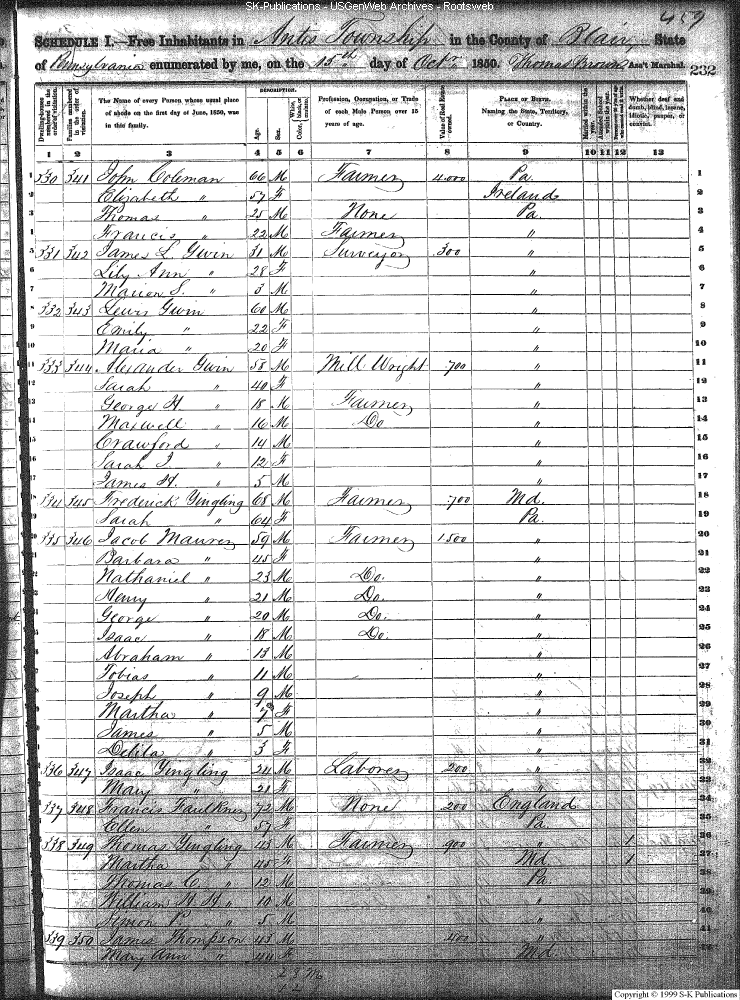 SK-Publications - USGenWeb Archives - Rootsweb
459
SCHEDULE I.—Free Inhabitants in Antis Township in the County of Blair, State
of Pennsylvania enumerated by me, on the 15th day of Octr 1850. Thomas Brown Ass't Marshal. 232
Dwelling-houses numbered in the order of visitation.
Families numbered in the order of visitation.
The Name of every Person whose usual place of abode on the first day of June, 1850, was in this family.
DESCRIPTION.
Age.
Sex.
White, black, or mulatto.
Profession, Occupation, or Trade of each Male Person over 15 years of age.
Value of Real Estate owned.
PLACE OF BIRTH. Naming the State, Territory, or Country.
Married within the year.
Whether deaf and dumb, blind, insane, idiotic, pauper, or convict.
1 2 3 4 5 6 7 8 9 10 11 12 13
1 330 341 John Coleman 66 M Farmer 4.000 Pa. 1
2 Elizabeth " 57 F Ireland 2
3 Thomas " 25 M None Pa. 3
4 Francis " 22 M Farmer " 4
5 331 342 James L. Gwin 31 M Surveyor 300 " 5
6 Lily Ann " 28 F " 6
7 Marion S. " 3 M " 7
8 332 343 Lewis Gwin 60 M " 8
9 Emily " 22 F " 9
10 Maria " 20 F " 10
11 333 344 Alexander Gwin 58 M Mill Wright 700 " 11
12 Sarah " 40 F " 12
13 George H. " 18 M Farmer " 13
14 Maxwell " 16 M Do " 14
15 Crawford " 14 M " 15
16 Sarah J. " 12 F " 16
17 James H. " 5 M " 17
18 334 345 Frederick Yingling 68 M Farmer 700 Md. 18
19 Sarah " 64 F Pa. 19
20 335 346 Jacob Maurer 59 M Farmer 1500 " 20
21 Barbara " 45 F " 21
22 Nathaniel " 23 M Do. " 22
23 Henry " 21 M Do. " 23
24 George " 20 M Do. " 24
25 Isaac " 18 M Do. " 25
26 Abraham " 13 M " 26
27 Tobias " 11 M " 27
28 Joseph " 9 M " 28
29 Martha " 7 F " 29
30 James " 5 M " 30
31 Delila " 3 F " 31
336 347 Isaac Yingling 24 M Laborer 200 "
Mary " 21 F "
337 348 Francis Faulkner 72 M None 200 England
Ellen " 57 F Pa.
338 349 Thomas Yingling 43 M Farmer 900 " 1
Martha " 45 F Md 1
Thomas C. " 12 M Pa.
William H H " 10 M "
Simon P. " 5 M "
339 350 James Thompson 43 M "
Mary Ann " 44 F Md.
Copyright © 1999 S-K Publications